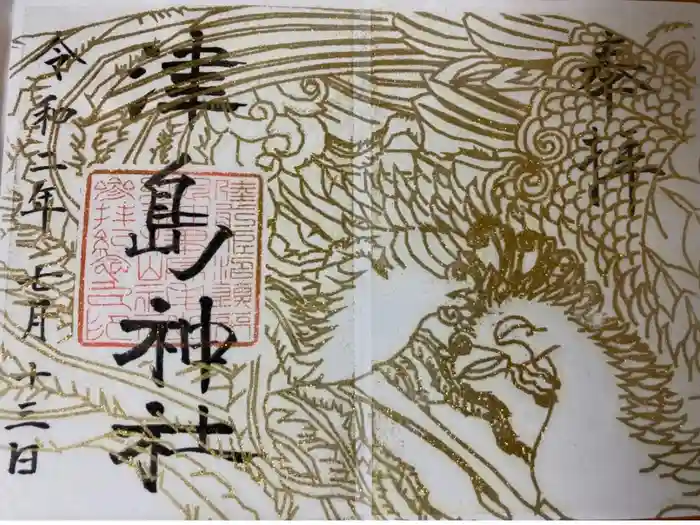 奉拝
津島神社
令和二年七月十三日